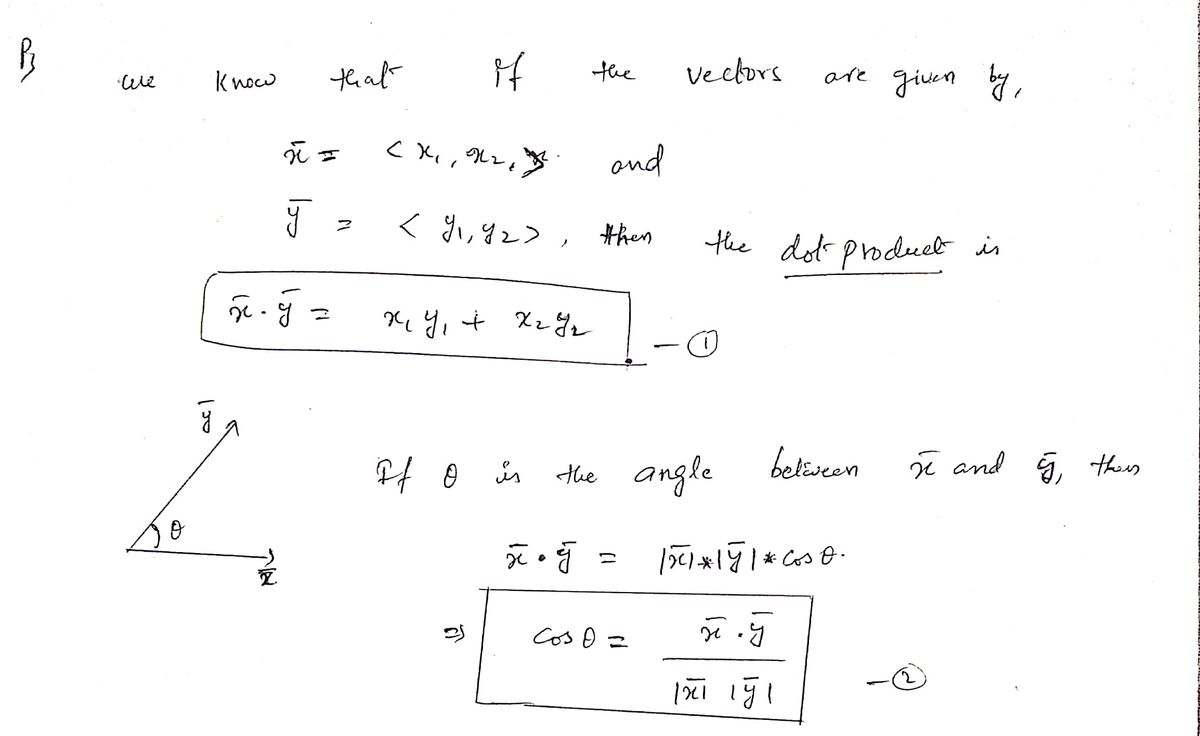 we know that if the vectors are given by,
x̄ = < x₁, x₂, and
ȳ = < y₁, y₂ >, then the dot product is
x̄ . ȳ = x₁ y₁ + x₂ y₂ — ①
ȳ
If θ is the angle between x̄ and ȳ, then
θ
x̄ • ȳ = |x̄| * |ȳ| * cos θ.
x̄
⇒ cos θ = x̄ . ȳ / |x̄| |ȳ| — ②